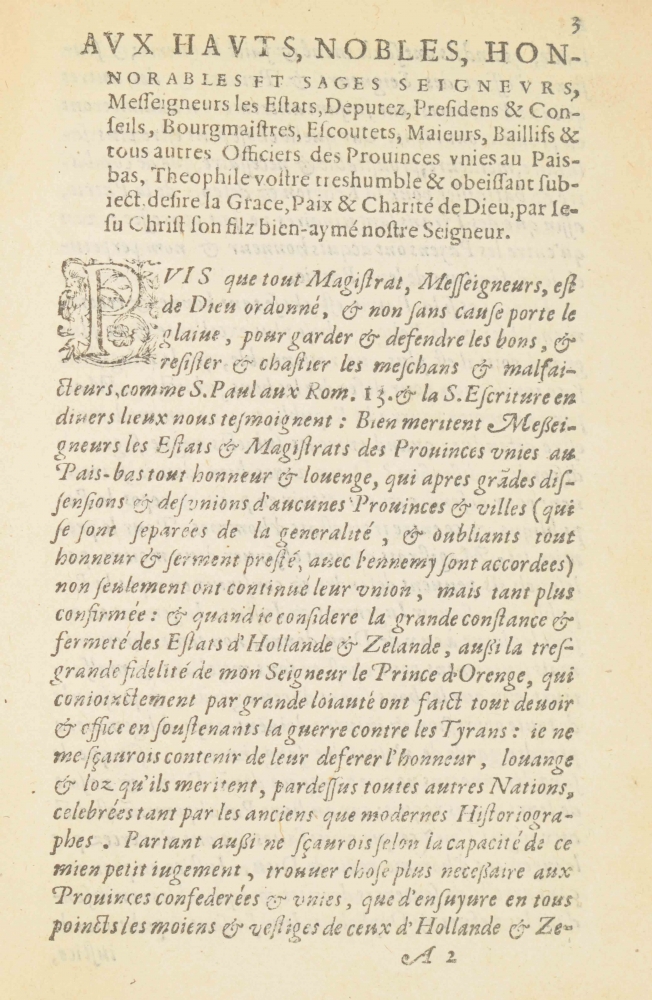 3
AVX HAVTS, NOBLES, HON-
NORABLES ET SAGES SEIGNEVRS,
Meſſeigneurs les Eſtats, Deputez, Preſidens & Con-
ſeils, Bourgmaiſtres, Eſcoutets, Maieurs, Baillifs &
tous autres Officiers des Prouinces vnies au Pais-
bas, Theophile voſtre treshumble & obeiſſant ſub-
iect deſire la Grace, Paix & Charité de Dieu, par Ie-
ſu Chriſt ſon filz bien-aymé noſtre Seigneur.
PVIS que tout Magiſtrat, Meſſeigneurs, eſt
de Dieu ordonné, & non ſans cauſe porte le
glaiue, pour garder & defendre les bons, &
reſiſter & chaſtier les meſchans & malfai-
cteurs, comme S. Paul aux Rom. 13. & la S. Eſcriture en
diuers lieux nous teſmoignent : Bien meritent Meßei-
gneurs les Eſtats & Magiſtrats des Prouinces vnies au
Pais-bas tout honneur & louenge, qui apres grãdes diſ-
ſenſions & deſvnions d'aucunes Prouinces & villes (qui
ſe ſont ſeparées de la generalité, & oubliants tout
honneur & ſerment preſté, auec l'ennemy ſont accordees)
non ſeulement ont continué leur vnion, mais tant plus
confirmée : & quand ie conſidere la grande conſtance &
fermeté des Eſtats d'Hollande & Zelande, außi la treſ-
grande fidelité de mon Seigneur le Prince d'Orenge, qui
conioinctement par grande loiauté ont faict tout deuoir
& office en ſouſtenants la guerre contre les Tyrans : ie ne
me ſçaurois contenir de leur deferer l'honneur, louange
& loz qu'ils meritent, pardeſſus toutes autres Nations,
celebrées tant par les anciens que modernes Hiſtoriogra-
phes. Partant außi ne ſçaurois ſelon la capacité de ce
mien petit iugement, trouuer choſe plus neceßaire aux
Prouinces confederées & vnies, que d'enſuyure en tous
poincts les moiens & veſtiges de ceux d'Hollande & Ze-
A 2